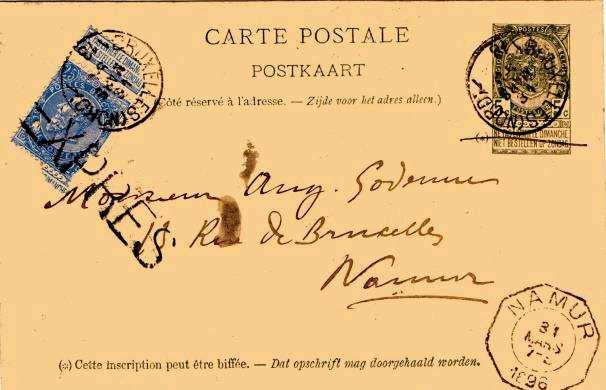 CARTE POSTALE
POSTKAART
(Côté réservé à l'adresse. — Zijde voor het adres alleen.)
BRUXELLES (NORD)
BRUXELLES (NORD)
POSTES
NE PAS LIVRER LE DIMANCHE
NIET BESTELLEN OP ZONDAG
(*)
EXPRES
Monsieur Aug. Godenne
18. Rue de Bruxelles
Namur
NAMUR
31
MARS
1896
(*) Cette inscription peut être biffée. — Dat opschrift mag doorgehaald worden.